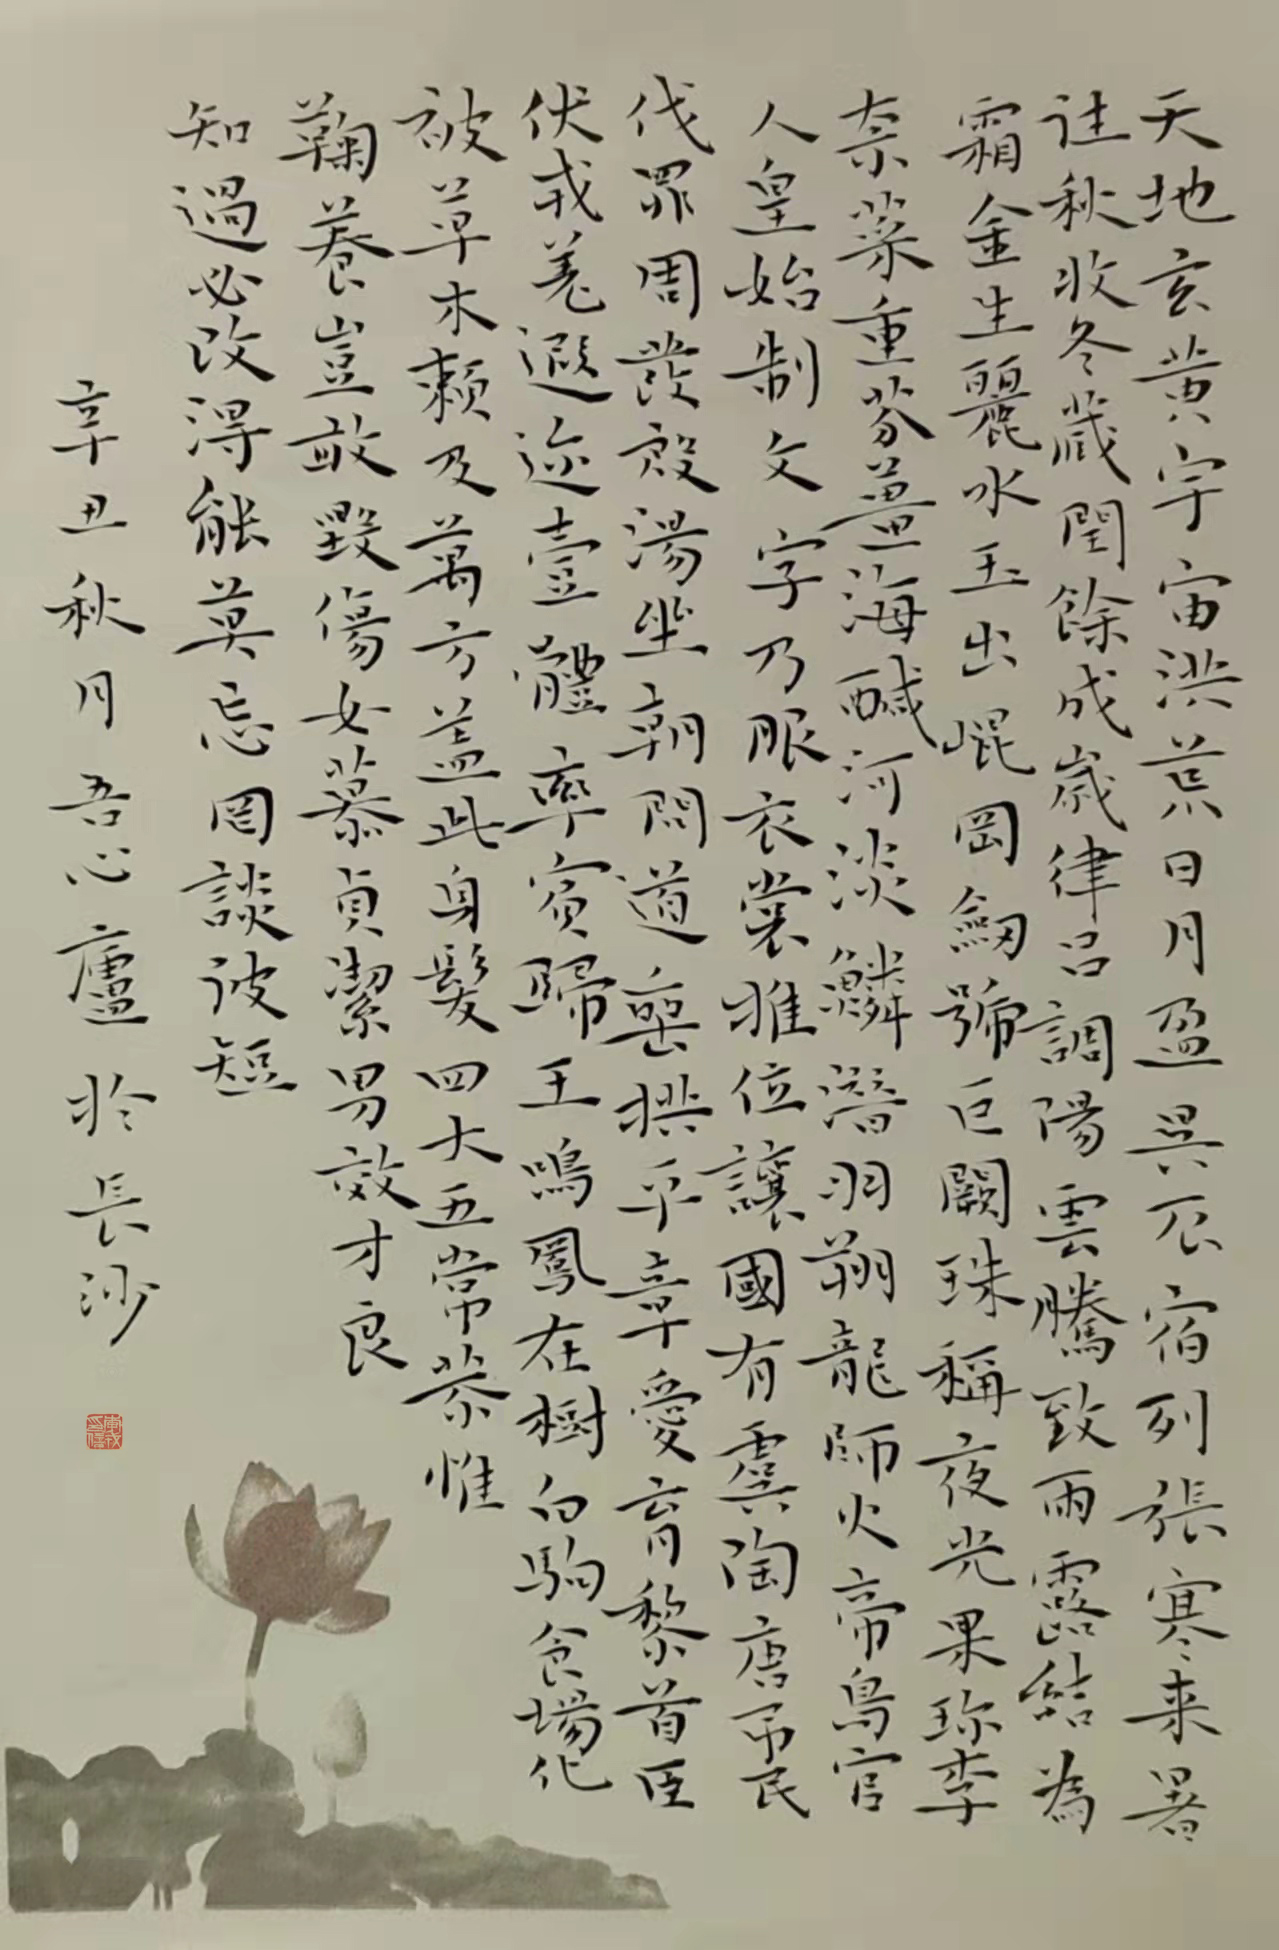 天地玄黄宇宙洪荒日月盈昃辰宿列張寒来暑
往秋收冬藏閏餘成歲律呂調陽雲騰致雨露結為
霜金生麗水玉出崐岡劒號巨闕珠稱夜光果珎李
柰菜重芥薑海醎河淡鱗潛羽翔龍師火帝鳥官
人皇始制文字乃服衣裳推位讓國有虞陶唐吊民
伐罪周發殷湯坐朝問道垂拱平章愛育黎首臣
伏戎羌遐迩壹體率賓歸王鳴鳳在樹白駒食場化
被草木賴及萬方盖此身髮四大五常恭惟
鞠養豈敢毀傷女慕貞潔男效才良
知過必改得能莫忘罔談彼短
辛丑秋月吾心廬於長沙